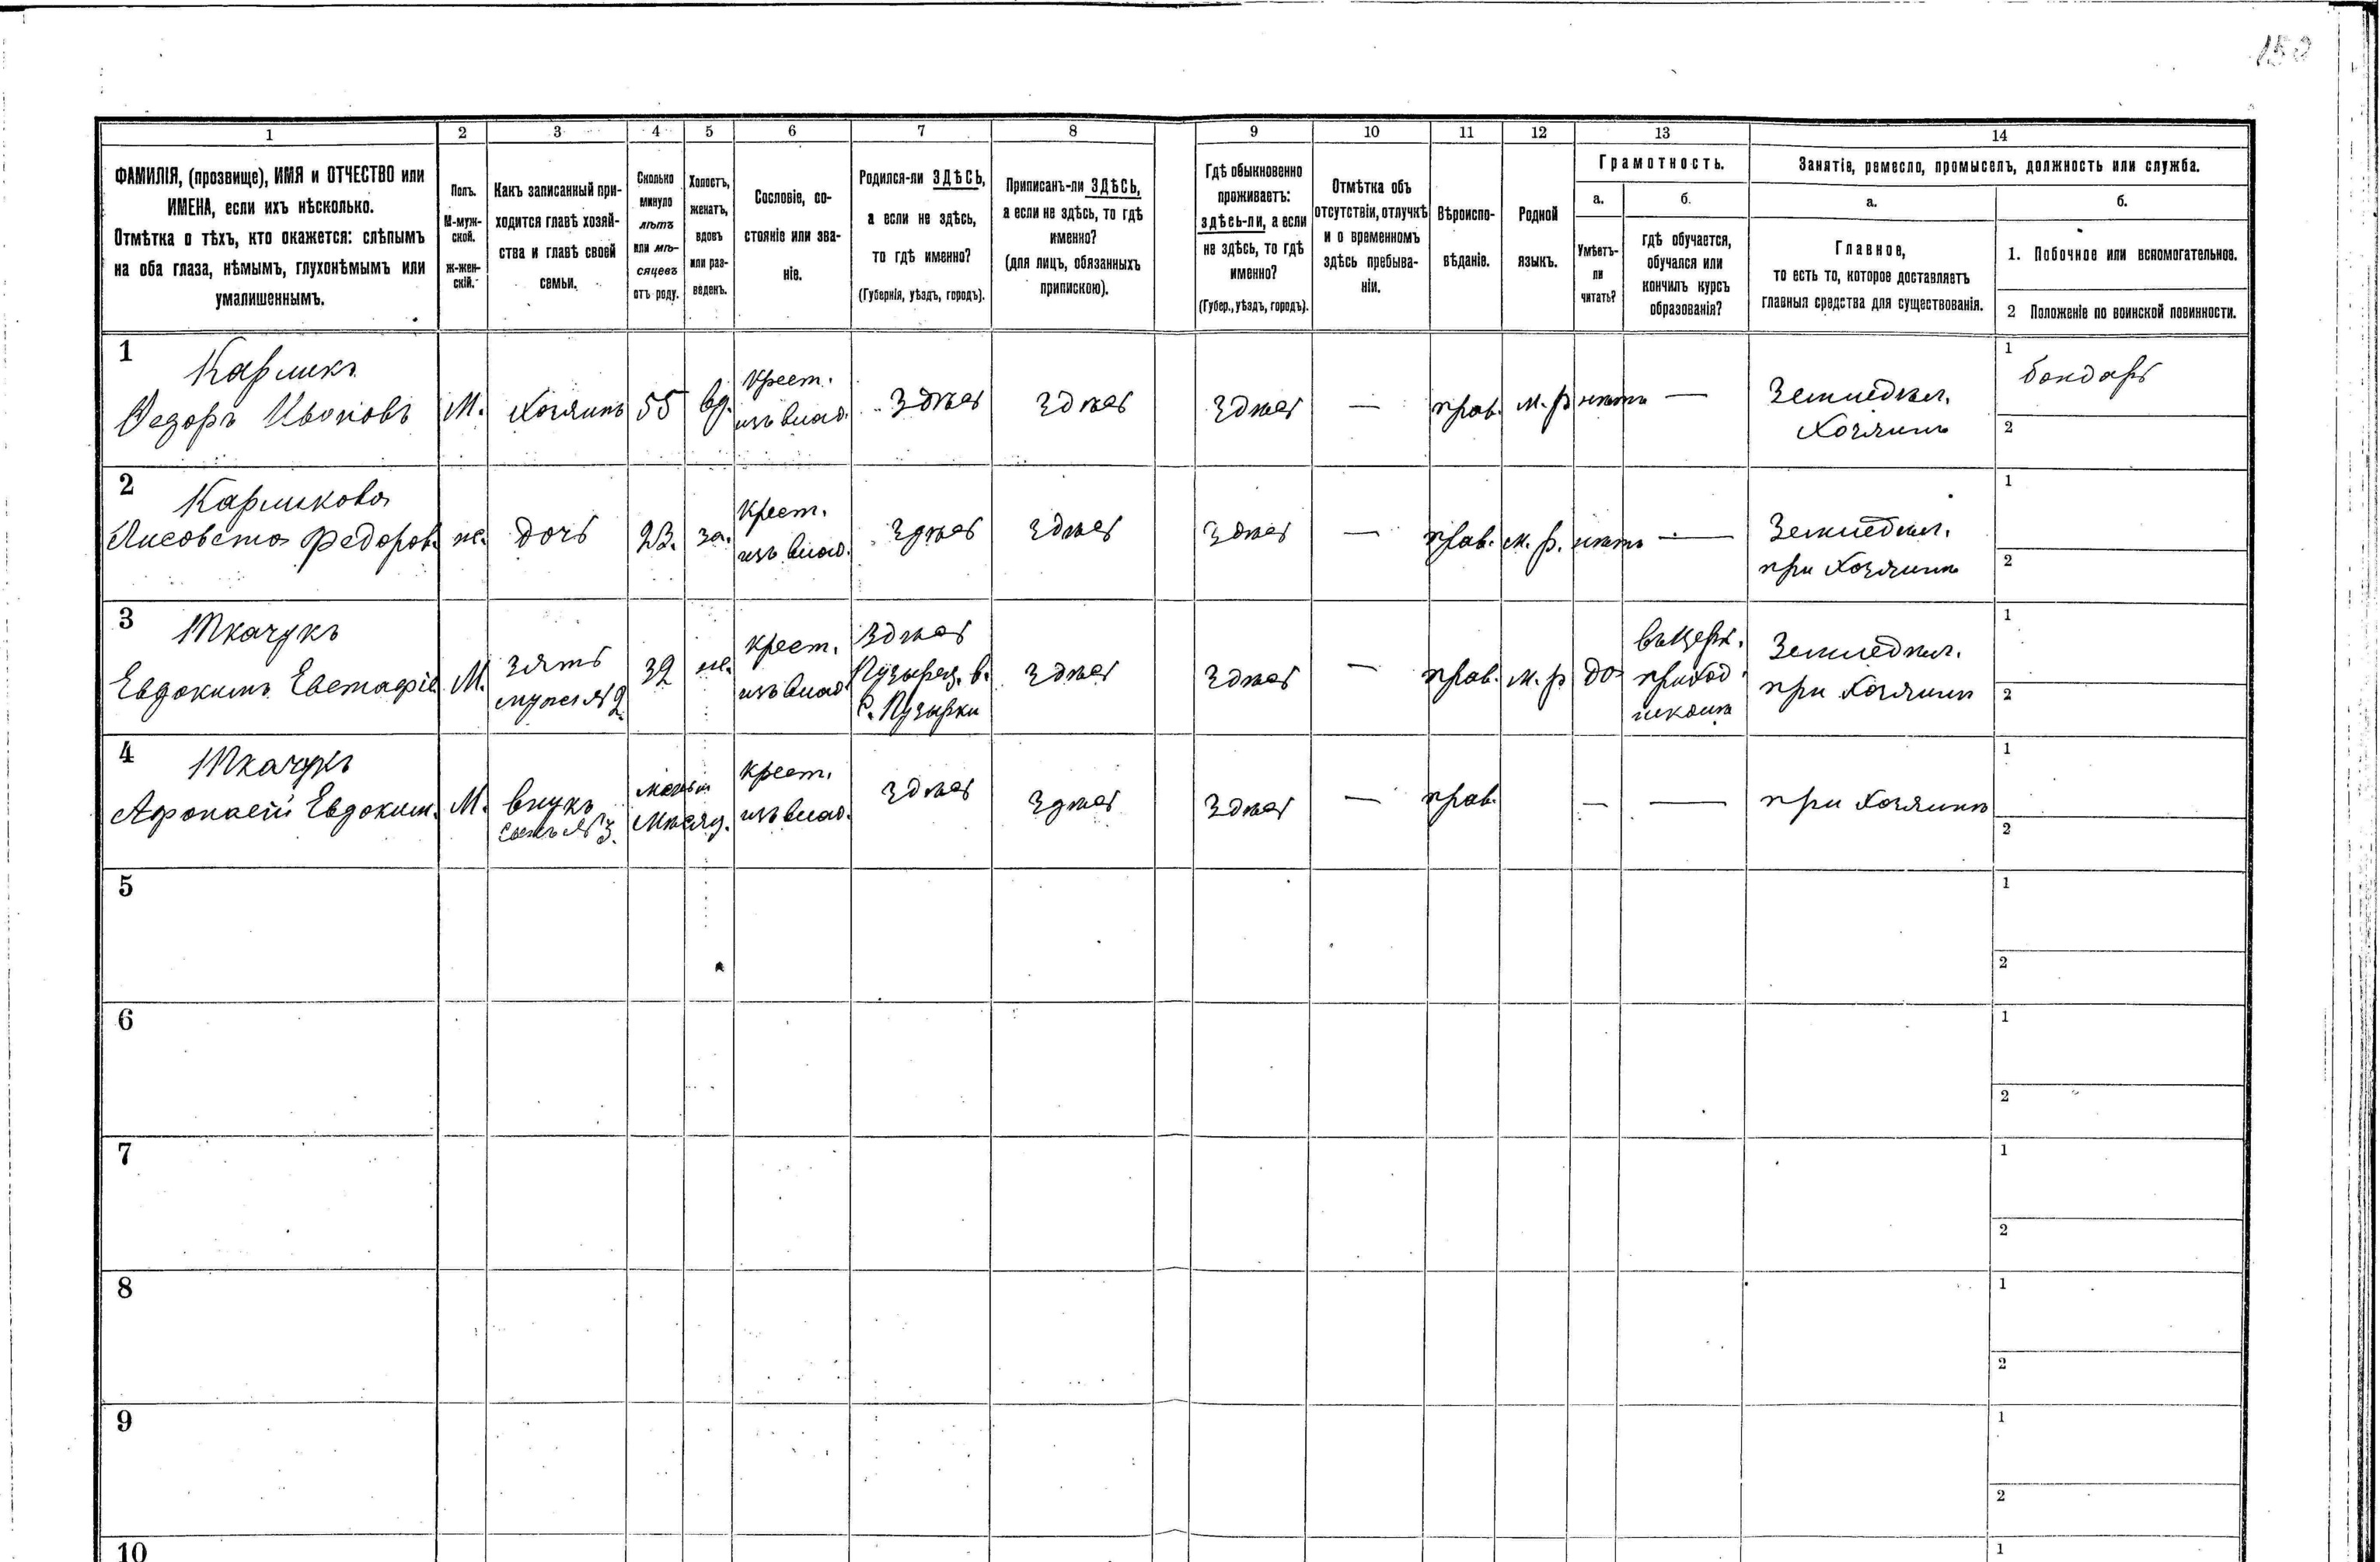 150
1 2 3 4 5 6 7 8 9 10 11 12 13 14
ФАМИЛІЯ, (прозвище), ИМЯ и ОТЧЕСТВО или
ИМЕНА, если ихъ нѣсколько.
Отмѣтка о тѣхъ, кто окажется: слѣпымъ
на оба глаза, нѣмымъ, глухонѣмымъ или
умалишеннымъ.
Полъ.
М-муж-
ской.
ж-жен-
скій.
Какъ записанный при-
ходится главѣ хозяй-
ства и главѣ своей
семьи.
Сколько
минуло
лѣтъ
или мѣ-
сяцевъ
отъ роду.
Холостъ,
женатъ,
вдовъ
или раз-
веденъ.
Сословіе, со-
стояніе или зва-
ніе.
Родился-ли ЗДѢСЬ,
а если не здѣсь,
то гдѣ именно?
(Губернія, уѣздъ, городъ).
Приписанъ-ли ЗДѢСЬ,
а если не здѣсь, то гдѣ
именно?
(для лицъ, обязанныхъ
припискою).
Гдѣ обыкновенно
проживаетъ:
здѣсь-ли, а если
не здѣсь, то гдѣ
именно?
(Губер., уѣздъ, городъ).
Отмѣтка объ
отсутствіи, отлучкѣ
и о временномъ
здѣсь пребыва-
ніи.
Вѣроиспо-
вѣданіе.
Родной
языкъ.
Грамотность.
а.
Умѣетъ-
ли
читать?
б.
гдѣ обучается,
обучался или
кончилъ курсъ
образованія?
Занятіе, ремесло, промыселъ, должность или служба.
а.
Главное,
то есть то, которое доставляетъ
главныя средства для существованія.
б.
1. Побочное или вспомогательное.
2 Положеніе по воинской повинности.
1
Карликъ
Федоръ Ивановъ
М.
Хозяинъ
55
вд.
Крест.
изъ влад.
Здѣсь
Здѣсь
Здѣсь
—
прав.
м. р
нѣтъ
—
Земледѣл.
Хозяинъ
1
бондарь
2
2
Карликова
Лисовета Федоров.
же.
дочь
23.
за.
Крест.
изъ влад.
Здѣсь
Здѣсь
Здѣсь
—
прав.
м. р.
нѣтъ
—
Земледѣл.
при Хозяинѣ
1
2
3
Ткачукъ
Евдокимъ Евстафіе
М.
зять
мужъ №2
32
же.
крест.
изъ влад.
Здѣсь
Пузырец. в.
с. Пузырки
Здѣсь
Здѣсь
—
прав.
м. р
да
въ церк.
приход.
школѣ
Земледѣл.
при Хозяинѣ
1
2
4
Ткачукъ
Афонасій Евдоким.
М.
внукъ
сынъ №3.
менѣе
мѣсяц.
крест.
изъ влад.
Здѣсь
Здѣсь
Здѣсь
—
прав.
—
—
при Хозяинѣ
1
2
5
1
2
6
1
2
7
1
2
8
1
2
9
1
2
10
1